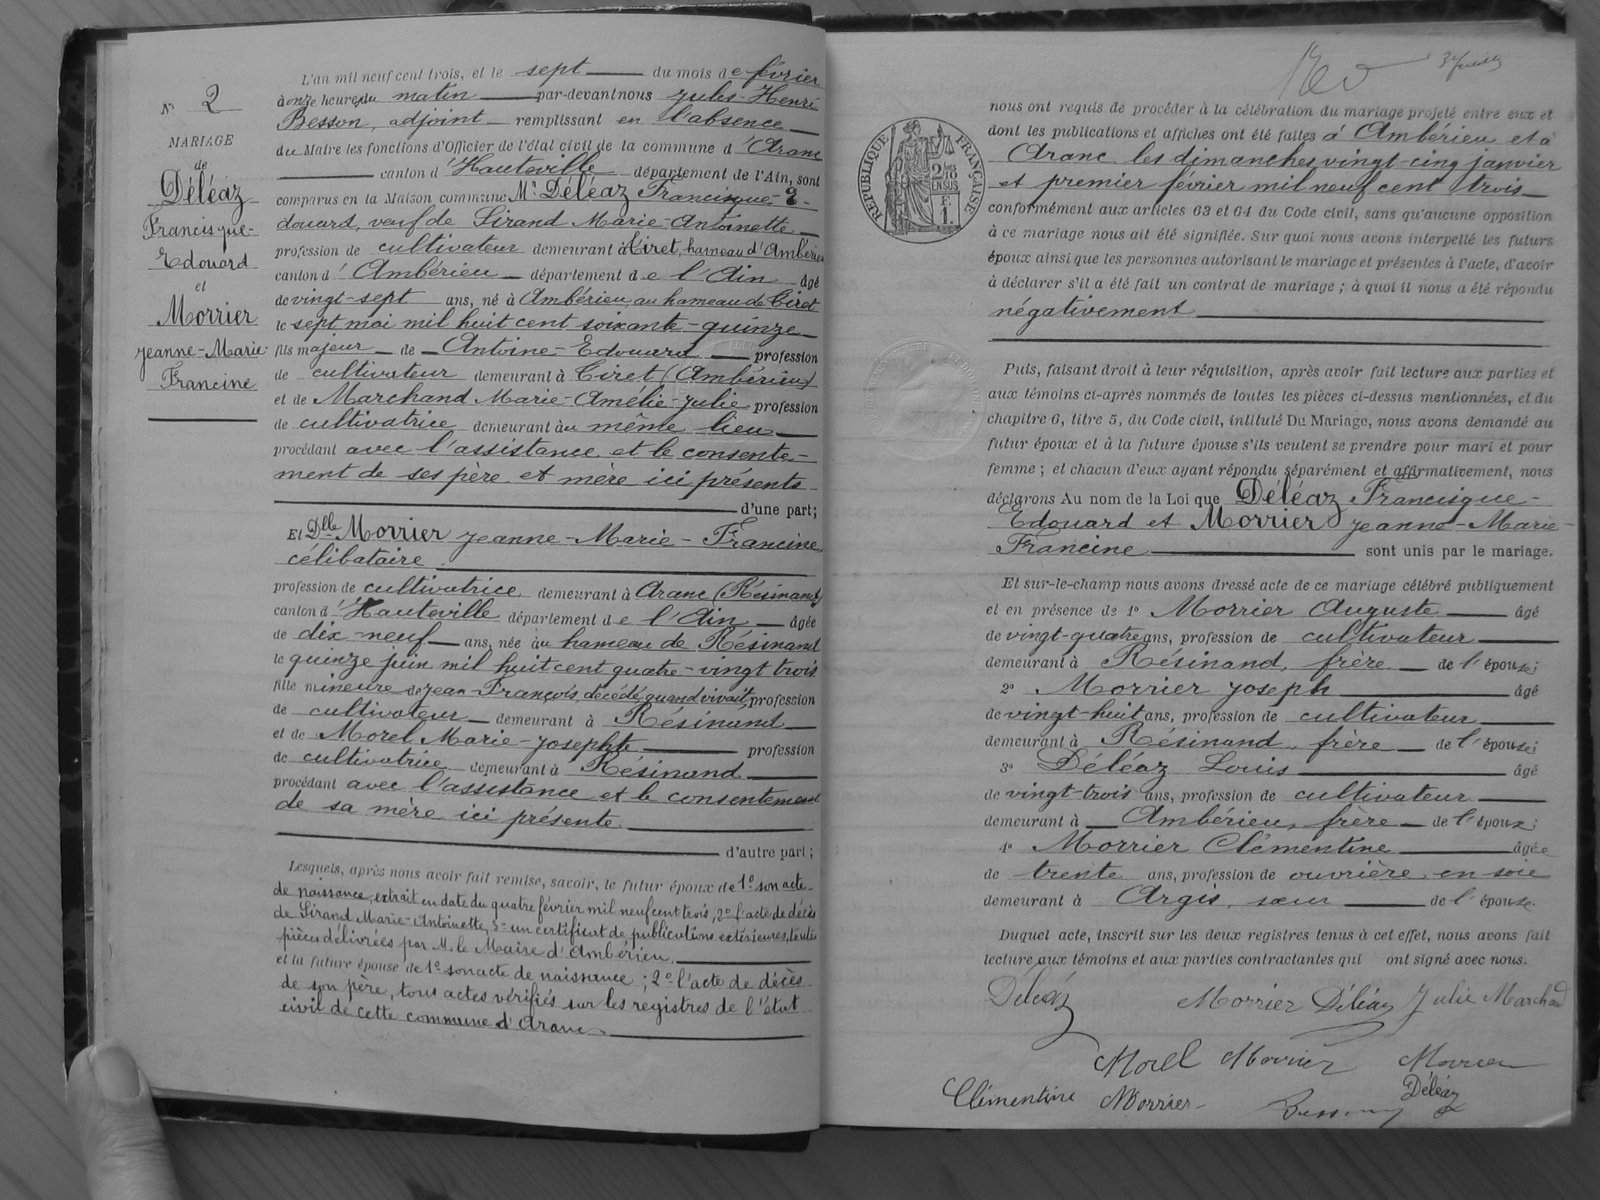 N° 2
MARIAGE
de
Déléaz
Francisque-
Edouard
et
Morrier
Jeanne-Marie-
Francine
L'an mil neuf cent trois, et le sept du mois de février
à onze heures du matin par-devant nous Jules-Henri
Besson, adjoint remplissant en l'absence
du Maire les fonctions d'Officier de l'état civil de la commune d'Aranc
canton d'Hauteville département de l'Ain, sont
comparus en la Maison commune Mr Déléaz Francisque-E-
douard, veuf de Sirand Marie-Antoinette
profession de cultivateur demeurant à Tiret, hameau d'Ambérieu
canton d'Ambérieu département de l'Ain âgé
de vingt-sept ans, né à Ambérieu au hameau de Tiret
le sept mai mil huit cent soixante-quinze
fils majeur de Antoine-Edouard profession
de cultivateur demeurant à Tiret (Ambérieu)
et de Marchand Marie-Amélie-Julie profession
de cultivatrice demeurant au même lieu
procédant avec l'assistance et le consente-
ment de ses père et mère ici présents
d'une part;
Et Dlle Morrier Jeanne-Marie-Francine
célibataire
profession de cultivatrice demeurant à Aranc (Résinand)
canton d'Hauteville département de l'Ain âgée
de dix-neuf ans, née au hameau de Résinand
le quinze juin mil huit cent quatre-vingt trois
fille mineure de Jean-François, décédé, quand vivait, profession
de cultivateur demeurant à Résinand
et de Morel Marie-Josephte profession
de cultivatrice demeurant à Résinand
procédant avec l'assistance et le consentement
de sa mère ici présente
d'autre part;
Lesquels, après nous avoir fait remise, savoir, le futur époux de 1° son acte
de naissance, extrait en date du quatre février mil neuf cent trois, 2° l'acte de décès
de Sirand Marie-Antoinette, 3° un certificat de publications extérieures, toutes
pièces délivrées par M. le Maire d'Ambérieu.
et la future épouse de 1° son acte de naissance; 2° l'acte de décès
de son père, tous actes vérifiés sur les registres de l'état
civil de cette commune d'Aranc
RÉPUBLIQUE FRANÇAISE
nous ont requis de procéder à la célébration du mariage projeté entre eux et
dont les publications et affiches ont été faites à Ambérieu et à
Aranc les dimanches vingt-cinq janvier
et premier février mil neuf cent trois
conformément aux articles 63 et 64 du Code civil, sans qu'aucune opposition
à ce mariage nous ait été signifiée. Sur quoi nous avons interpellé les futurs
époux ainsi que les personnes autorisant le mariage et présentes à l'acte, d'avoir
à déclarer s'il a été fait un contrat de mariage; à quoi il nous a été répondu
négativement
Puis, faisant droit à leur réquisition, après avoir fait lecture aux parties et
aux témoins ci-après nommés de toutes les pièces ci-dessus mentionnées, et du
chapitre 6, titre 5, du Code civil, intitulé Du Mariage, nous avons demandé au
futur époux et à la future épouse s'ils veulent se prendre pour mari et pour
femme; et chacun d'eux ayant répondu séparément et affirmativement, nous
déclarons Au nom de la Loi que Déléaz Francisque-
Edouard et Morrier Jeanne-Marie-
Francine sont unis par le mariage.
Et sur-le-champ nous avons dressé acte de ce mariage célébré publiquement
et en présence de 1° Morrier Auguste âgé
de vingt-quatre ans, profession de cultivateur
demeurant à Résinand, frère de l'épouse;
2° Morrier Joseph âgé
de vingt-huit ans, profession de cultivateur
demeurant à Résinand, frère de l'épouse;
3° Déléaz Louis âgé
de vingt-trois ans, profession de cultivateur
demeurant à Ambérieu, frère de l'époux;
4° Morrier Clémentine âgée
de trente ans, profession de ouvrière en soie
demeurant à Argis, sœur de l'épouse.
Duquel acte, inscrit sur les deux registres tenus à cet effet, nous avons fait
lecture aux témoins et aux parties contractantes qui ont signé avec nous.
Déléaz Morrier Déléaz Julie Marchand
Morel Morrier Morrier
Clémentine Morrier Besson Déléaz